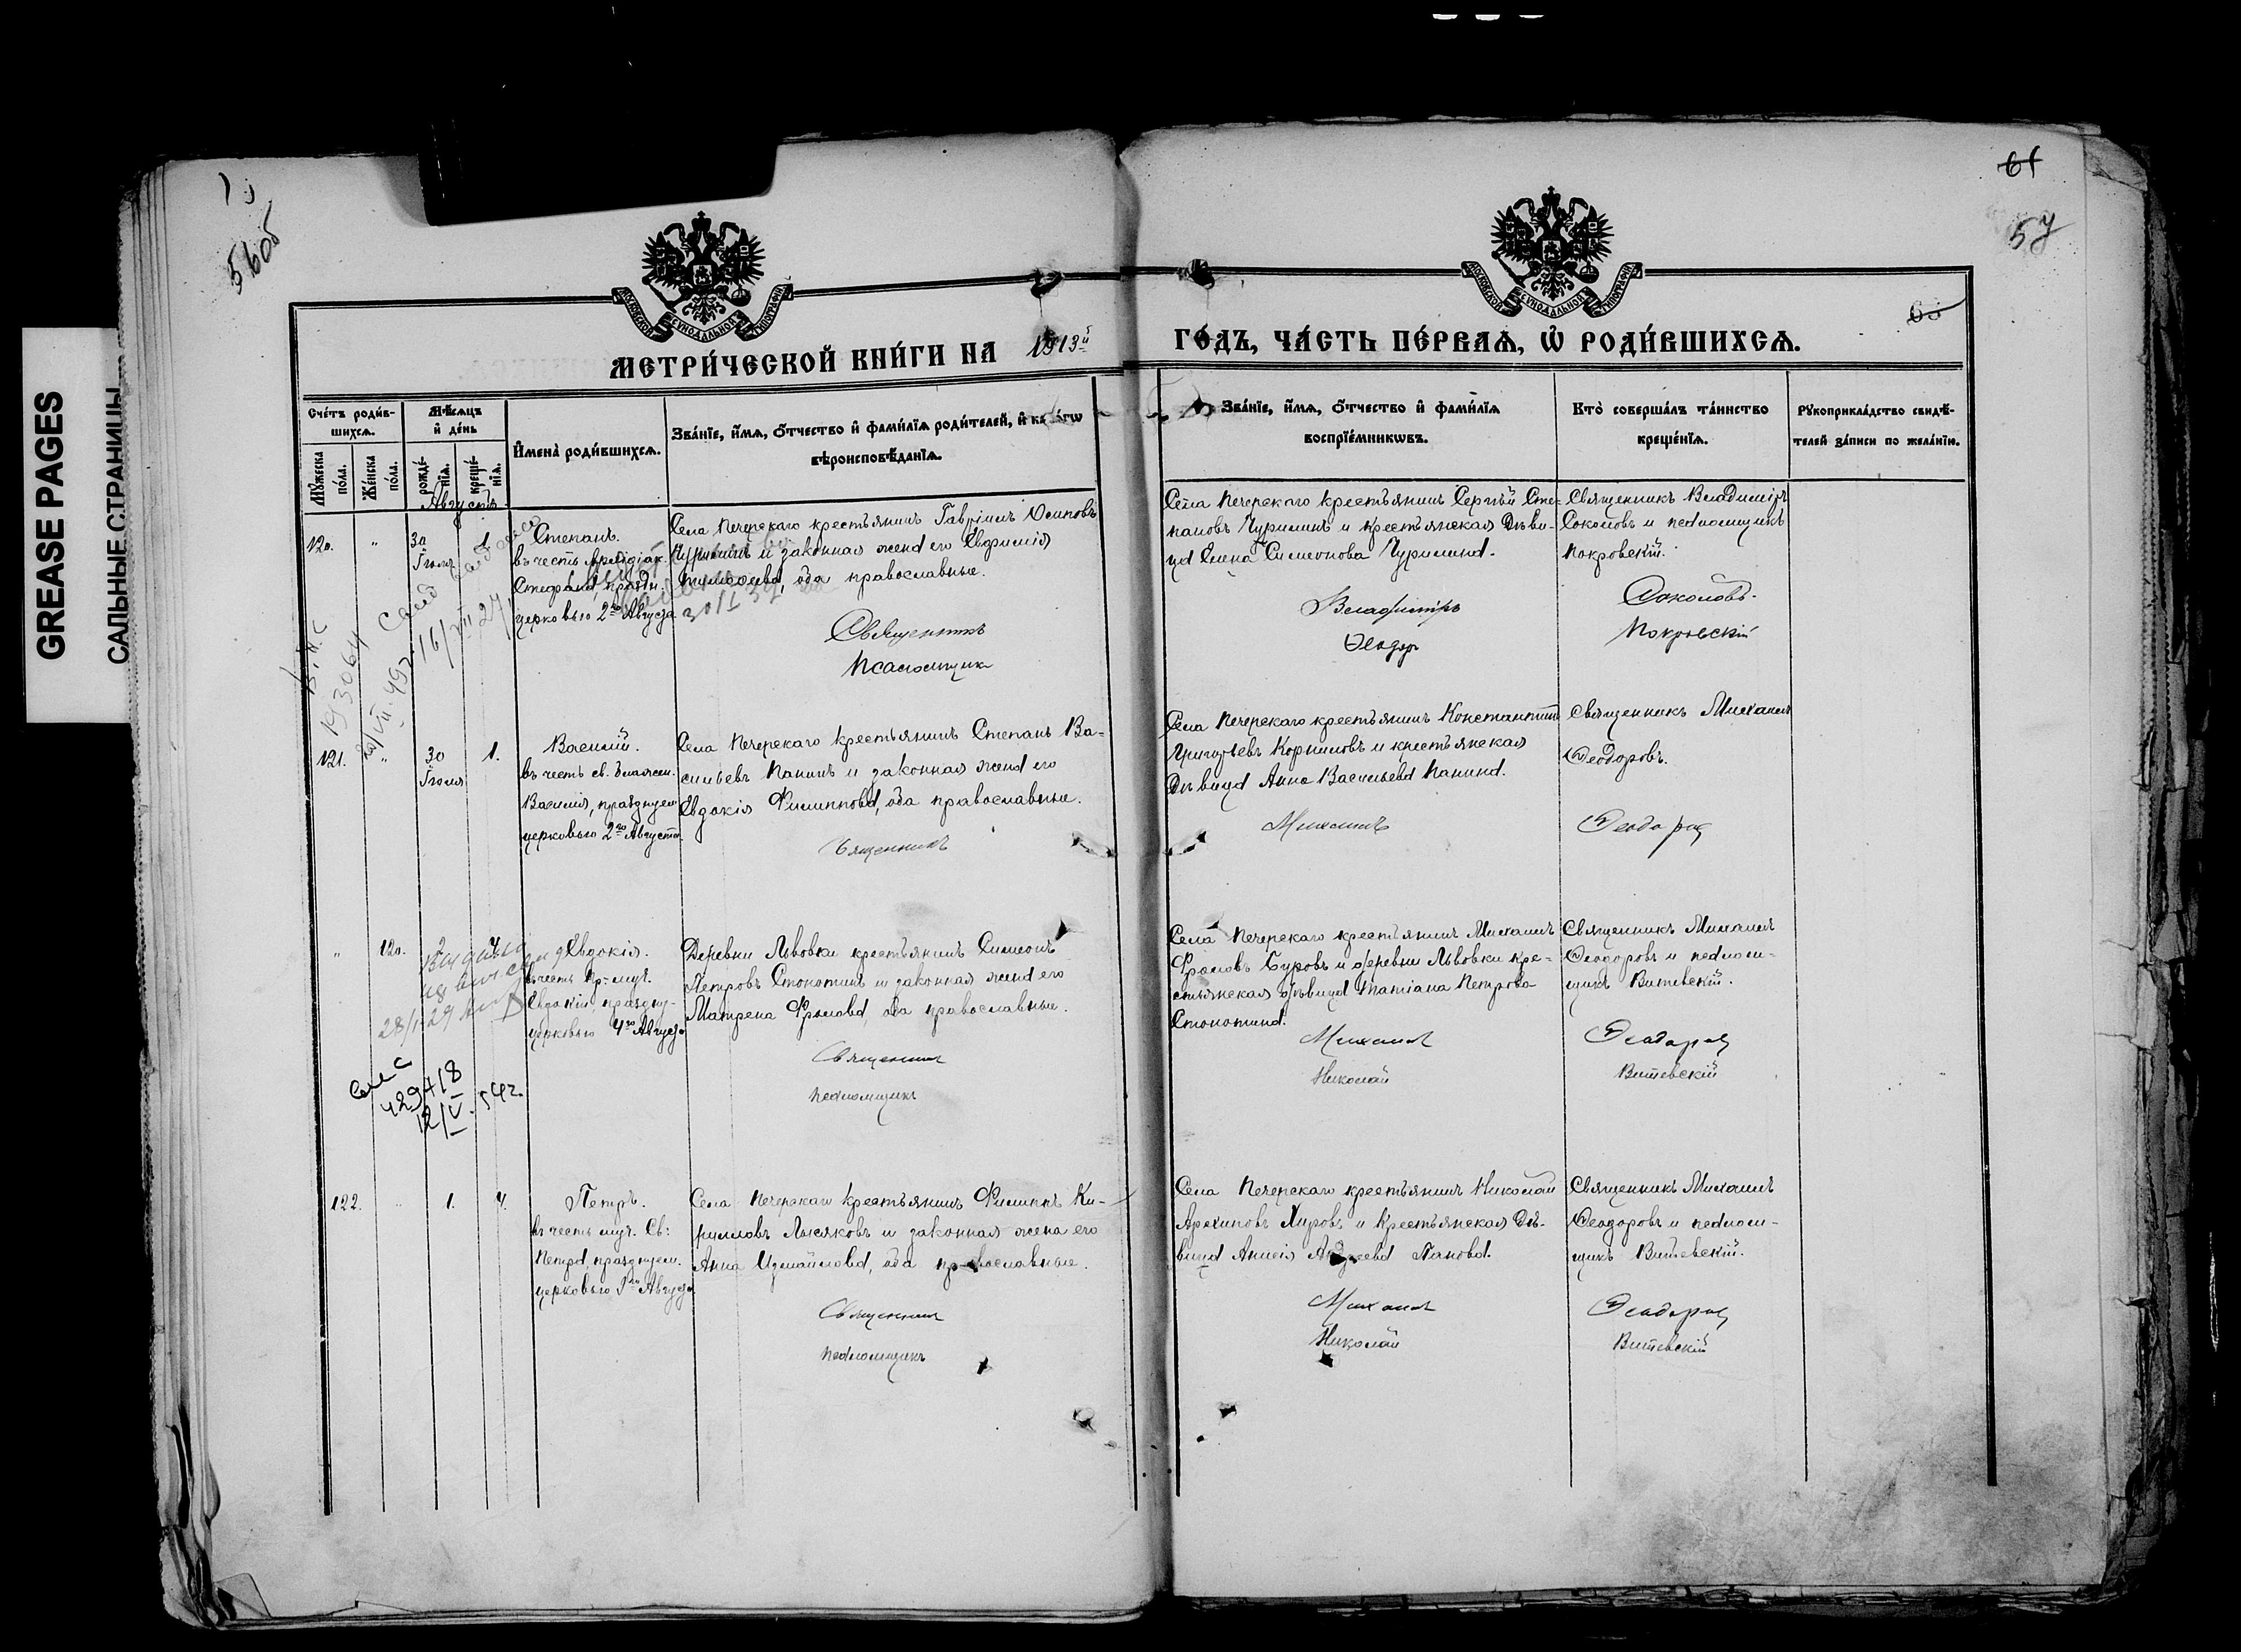 GREASE PAGES
САЛЬНЫЕ СТРАНИЦЫ
56об
61
57
МОСКОВСКОЙ СѴНОДАЛЬНОЙ ТИПОГРАФІИ
МОСКОВСКОЙ СѴНОДАЛЬНОЙ ТИПОГРАФІИ
МЕТРИ́ЧЕСКОЙ КНИ́ГИ НА 1913й ГО́ДЪ, ЧА́СТЬ ПЕ́РВАѦ, Ѡ҆ РОДИ́ВШИХСѦ.
Сче́тъ роди́в-
шихсѧ.
Мѣ́сѧцъ
и҆ де́нь
И҆мена̀ роди́вшихсѧ.
Зва́нїе, и҆́мѧ, ѻ҆́тчество и҆ фами́лїѧ роди́телей, и҆ како́гѡ
вѣроисповѣ́данїѧ.
Мꙋ́жеска
по́ла.
Же́нска
по́ла.
рожде́-
нїѧ.
креще́-
нїѧ.
Зва́нїе, и҆́мѧ, ѻ҆́тчество и҆ фами́лїѧ
воспрїе́мникѡвъ.
Кто̀ соверша́лъ та́инство
креще́нїѧ.
Рꙋкоприкла́дство свидѣ́-
телей за́писи по жела́нїю.
Августъ.
120.
"
30
Іюля
1.
Степанъ.
въ честь
Стефана, праздн.
церковью 2го Августа
Села Печерскаго крестьянинъ Гавріилъ Осиповъ
Чуриминъ и законная жена его Евфимія
оба православные.
Священникъ
Псаломщикъ
Села Печерскаго крестьянинъ Сергѣй Сте-
пановъ Чуриминъ и крестьянская дѣви-
ца Елена Симеонова Чуримина.
Владиміръ
Ѳеодоръ
Священникъ Владиміръ
Соколовъ и псаломщикъ
Покровскій.
Соколовъ.
Покровскій
193064
16/VII 27
30/I 39
121.
"
30
Іюля
1.
Василій.
въ честь св. блажен.
Василія, празднуем.
церковью 2го Августа
Села Печерскаго крестьянинъ Степанъ Ва-
сильевъ Панинъ и законная жена его
Евдокія Филиппова, оба православные.
Священникъ
Села Печерскаго крестьянинъ Константинъ
Григорьевъ Корниловъ и крестьянская
дѣвица Анна Васильева Панина.
Михаилъ
Священникъ Михаилъ
Ѳеодоровъ.
Ѳеодоровъ
"
120.
2
4.
Евдокія.
въ честь пр-муч.
Евдокіи, праздну-
церковью 4го Августа
Деревни Львовки крестьянинъ Симеонъ
Петровъ Стокотинъ и законная жена его
Матрена Фролова, оба православные.
Священникъ
псаломщикъ
Села Печерскаго крестьянинъ Михаилъ
Фроловъ Буровъ и деревни Львовки кре-
стьянская дѣвица Татіана Петрова
Стокотина.
Михаилъ
Николай
Священникъ Михаилъ
Ѳеодоровъ и псалом-
щикъ Витевскій.
Ѳеодоровъ
Витевскій
28/I-29
429418
12/V-54г.
122.
"
1.
4.
Петръ.
въ честь муч. Св:
Петра, празднуем.
церковью 1го Августа
Села Печерскаго крестьянинъ Филиппъ Ки-
рилловъ Лысяковъ и законная жена его
Анна Измайлова, оба православные.
Священникъ
псаломщикъ
Села Печерскаго крестьянинъ Николай
Архиповъ Хировъ и крестьянская дѣ-
вица Анисія Андреева Панова.
Михаилъ
Николай
Священникъ Михаилъ
Ѳеодоровъ и псалом-
щикъ Витевскій.
Ѳеодоровъ
Витевскій